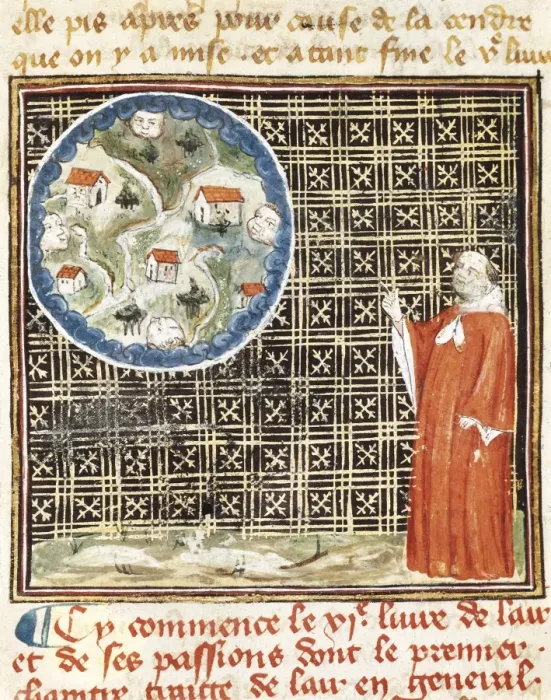 elle pis apres pour cause de la cendre
que on y a mise . et atant fine le v.e liure
Cy commence le xi.e liure de lair
et de ses passions dont le premier .
chapitre traitte de lair en general .